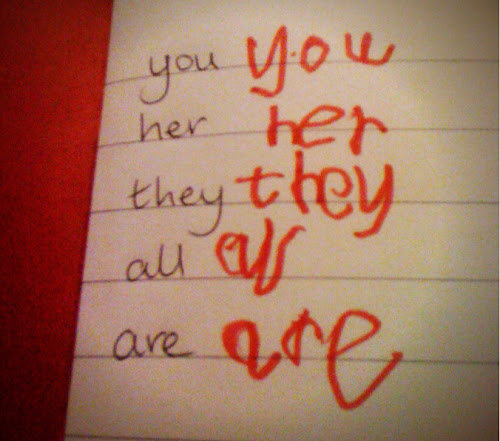 you you
her her
they they
all all
are are